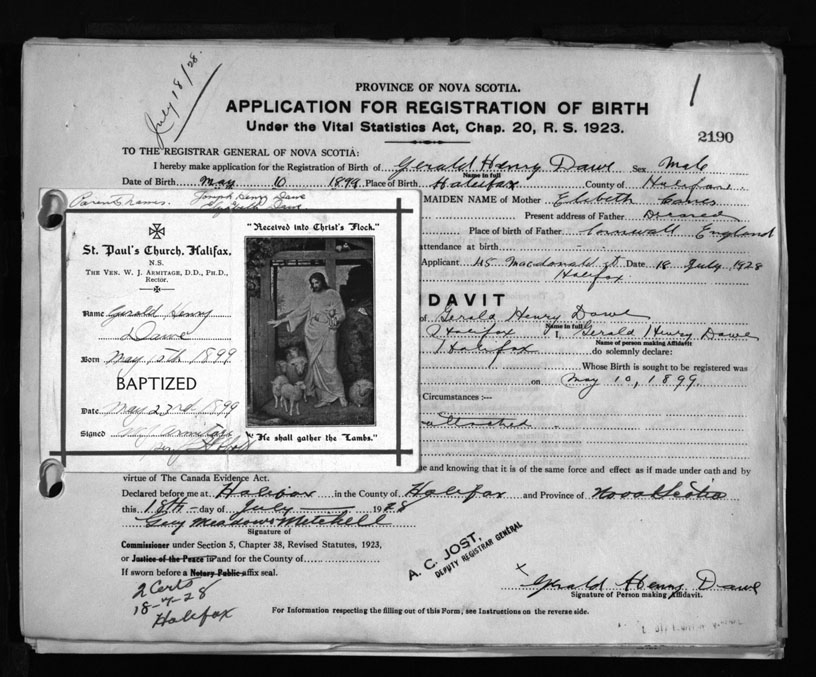 July 18/28.
1
PROVINCE OF NOVA SCOTIA.
APPLICATION FOR REGISTRATION OF BIRTH
Under the Vital Statistics Act, Chap. 20, R. S. 1923.
2190
TO THE REGISTRAR GENERAL OF NOVA SCOTIA:
I hereby make application for the Registration of Birth of Gerald Henry Dawe Sex Male
Name in full
Date of Birth May 10 1899 Place of Birth Halifax County of Halifax
Parents names Joseph Henry Dawe
Dawe
MAIDEN NAME of Mother
Present address of Father Deceased
Place of birth of Father Cornwall England
attendance at birth
Applicant 45 Macdonald St Date 18 July 1928
Halifax
St. Paul's Church, Halifax,
N.S.
THE VEN. W. J. ARMITAGE, D.D., PH.D.,
Rector.
Name Gerald Henry
Dawe
Born May 10th 1899
BAPTIZED
Date May 23rd 1899
Signed W J Armitage
"Received into Christ's Flock."
"He shall gather the Lambs."
DAVIT
of Gerald Henry Dawe
Name in full
Halifax I, Gerald Henry Dawe
Name of person making Affidavit
Halifax do solemnly declare:
Whose Birth is sought to be registered was
on May 10, 1899
Circumstances :—
attached
e and knowing that it is of the same force and effect as if made under oath and by
virtue of The Canada Evidence Act.
Declared before me at Halifax in the County of Halifax and Province of Nova Scotia
this 18th day of July 1928
Guy Meadows Mitchell
Signature of
Commissioner under Section 5, Chapter 38, Revised Statutes, 1923,
or Justice of the Peace in and for the County of
If sworn before a Notary Public affix seal.
A. C. JOST.
DEPUTY REGISTRAR GENERAL
2 Certs
18-7-28
Halifax
Gerald Henry Dawe
Signature of Person making Affidavit.
For Information respecting the filling out of this Form, see Instructions on the reverse side.